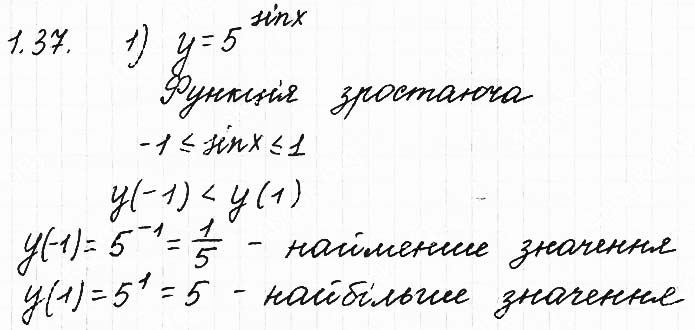 1.37. 1) y = 5^sinx
Функція зростаюча
-1 ≤ sinx ≤ 1
y(-1) < y(1)
y(-1) = 5^-1 = 1/5 - найменше значення
y(1) = 5^1 = 5 - найбільше значення